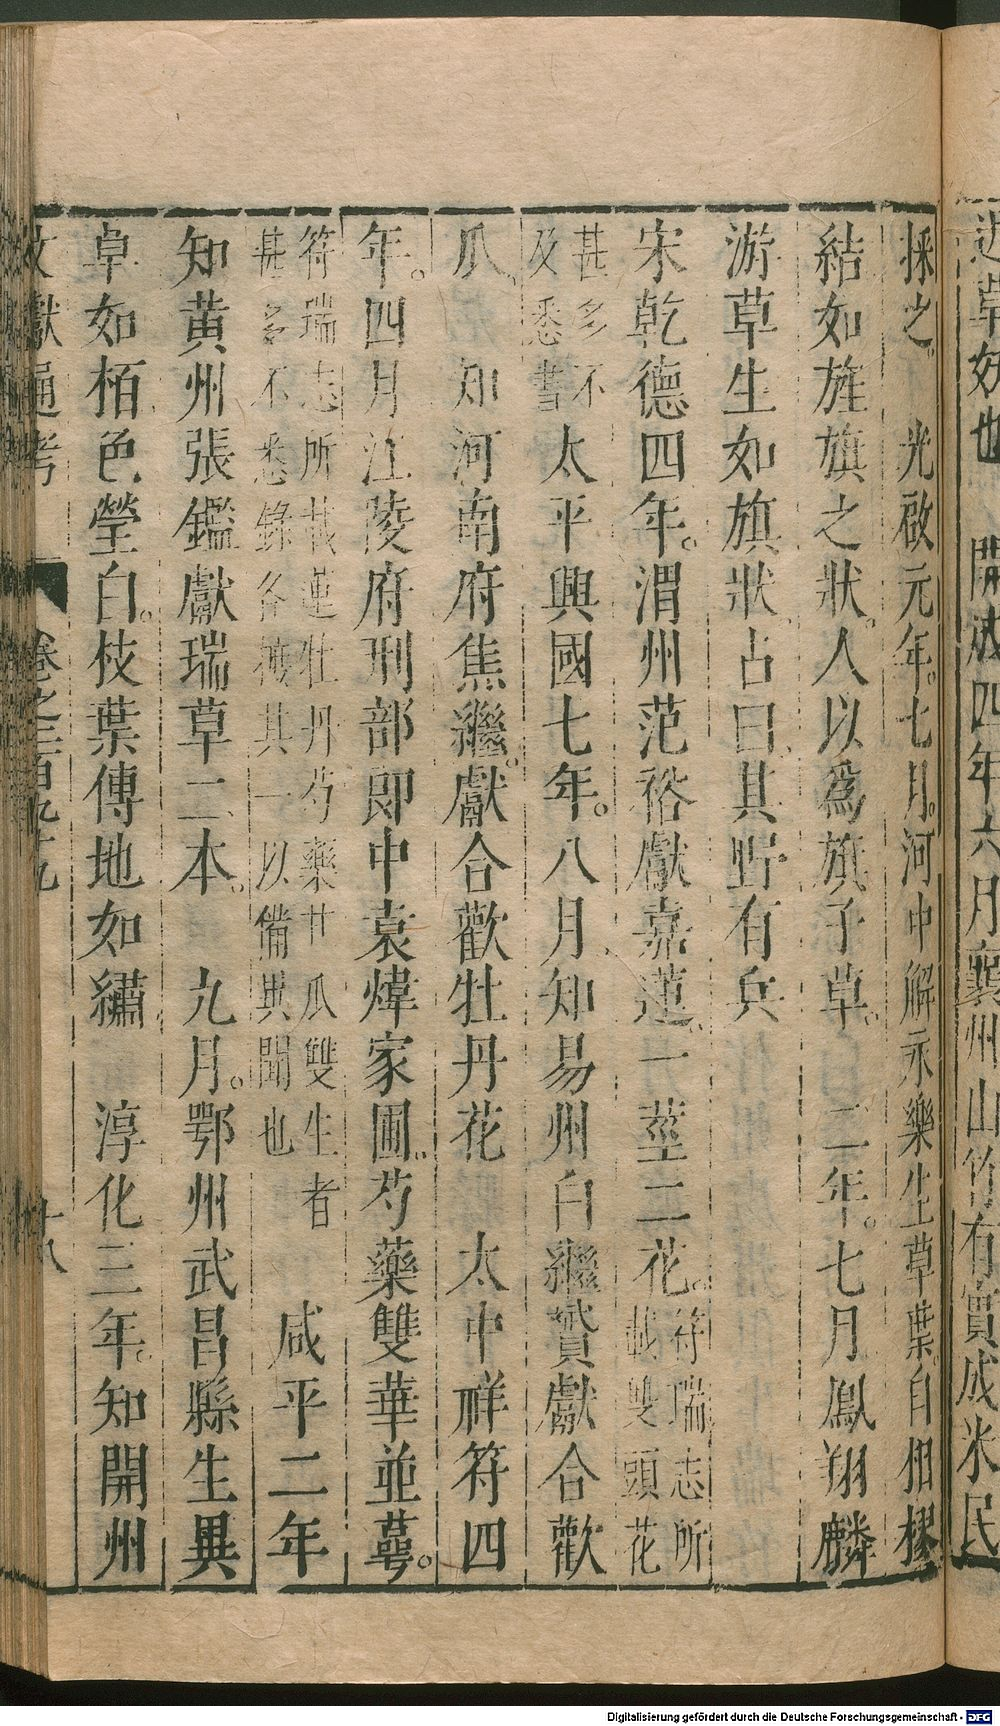 迆草妖也　開成四年六月襄州山竹有實成米民
採之。　光啟元年。七月。河中解永樂生草葉。自相樛
結如旌旗之狀。人以為旗子草。　二年。七月鳳翔麟
游草生如旗狀。占曰。其野有兵
宋乾德四年。渭州范裕獻嘉蓮、一莖二花。符瑞志所
載雙頭花
甚多不
及悉書　太平興國七年。八月、知易州白繼贇獻合歡
瓜、　知河南府焦繼。獻合歡牡丹花　太中祥符四
年。四月江陵府刑部郎中袁煒家圃。芍藥雙華並萼。
符瑞志所載蓮牡丹芍藥甘瓜雙生者
甚多不悉錄各摭其一以備異聞也　咸平二年
知黃州張鑑獻瑞草二本。　九月。鄂州武昌縣生異
草如栢色瑩白。枝葉傅地如繡　淳化三年。知開州
文獻通考
卷之二百九十九
十八
Digitalisierung gefördert durch die Deutsche Forschungsgemeinschaft - DFG